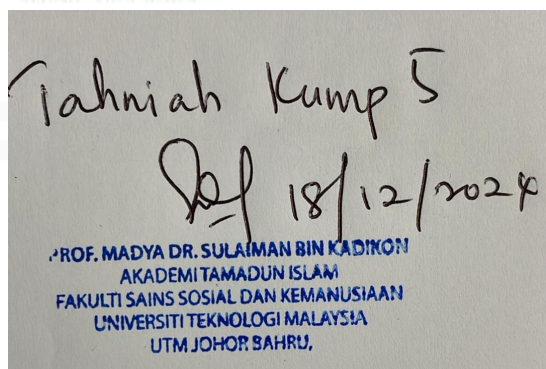 Tahniah Kump 5
18/12/2024
PROF. MADYA DR. SULAIMAN BIN KADIKON
AKADEMI TAMADUN ISLAM
FAKULTI SAINS SOSIAL DAN KEMANUSIAAN
UNIVERSITI TEKNOLOGI MALAYSIA
UTM JOHOR BAHRU,